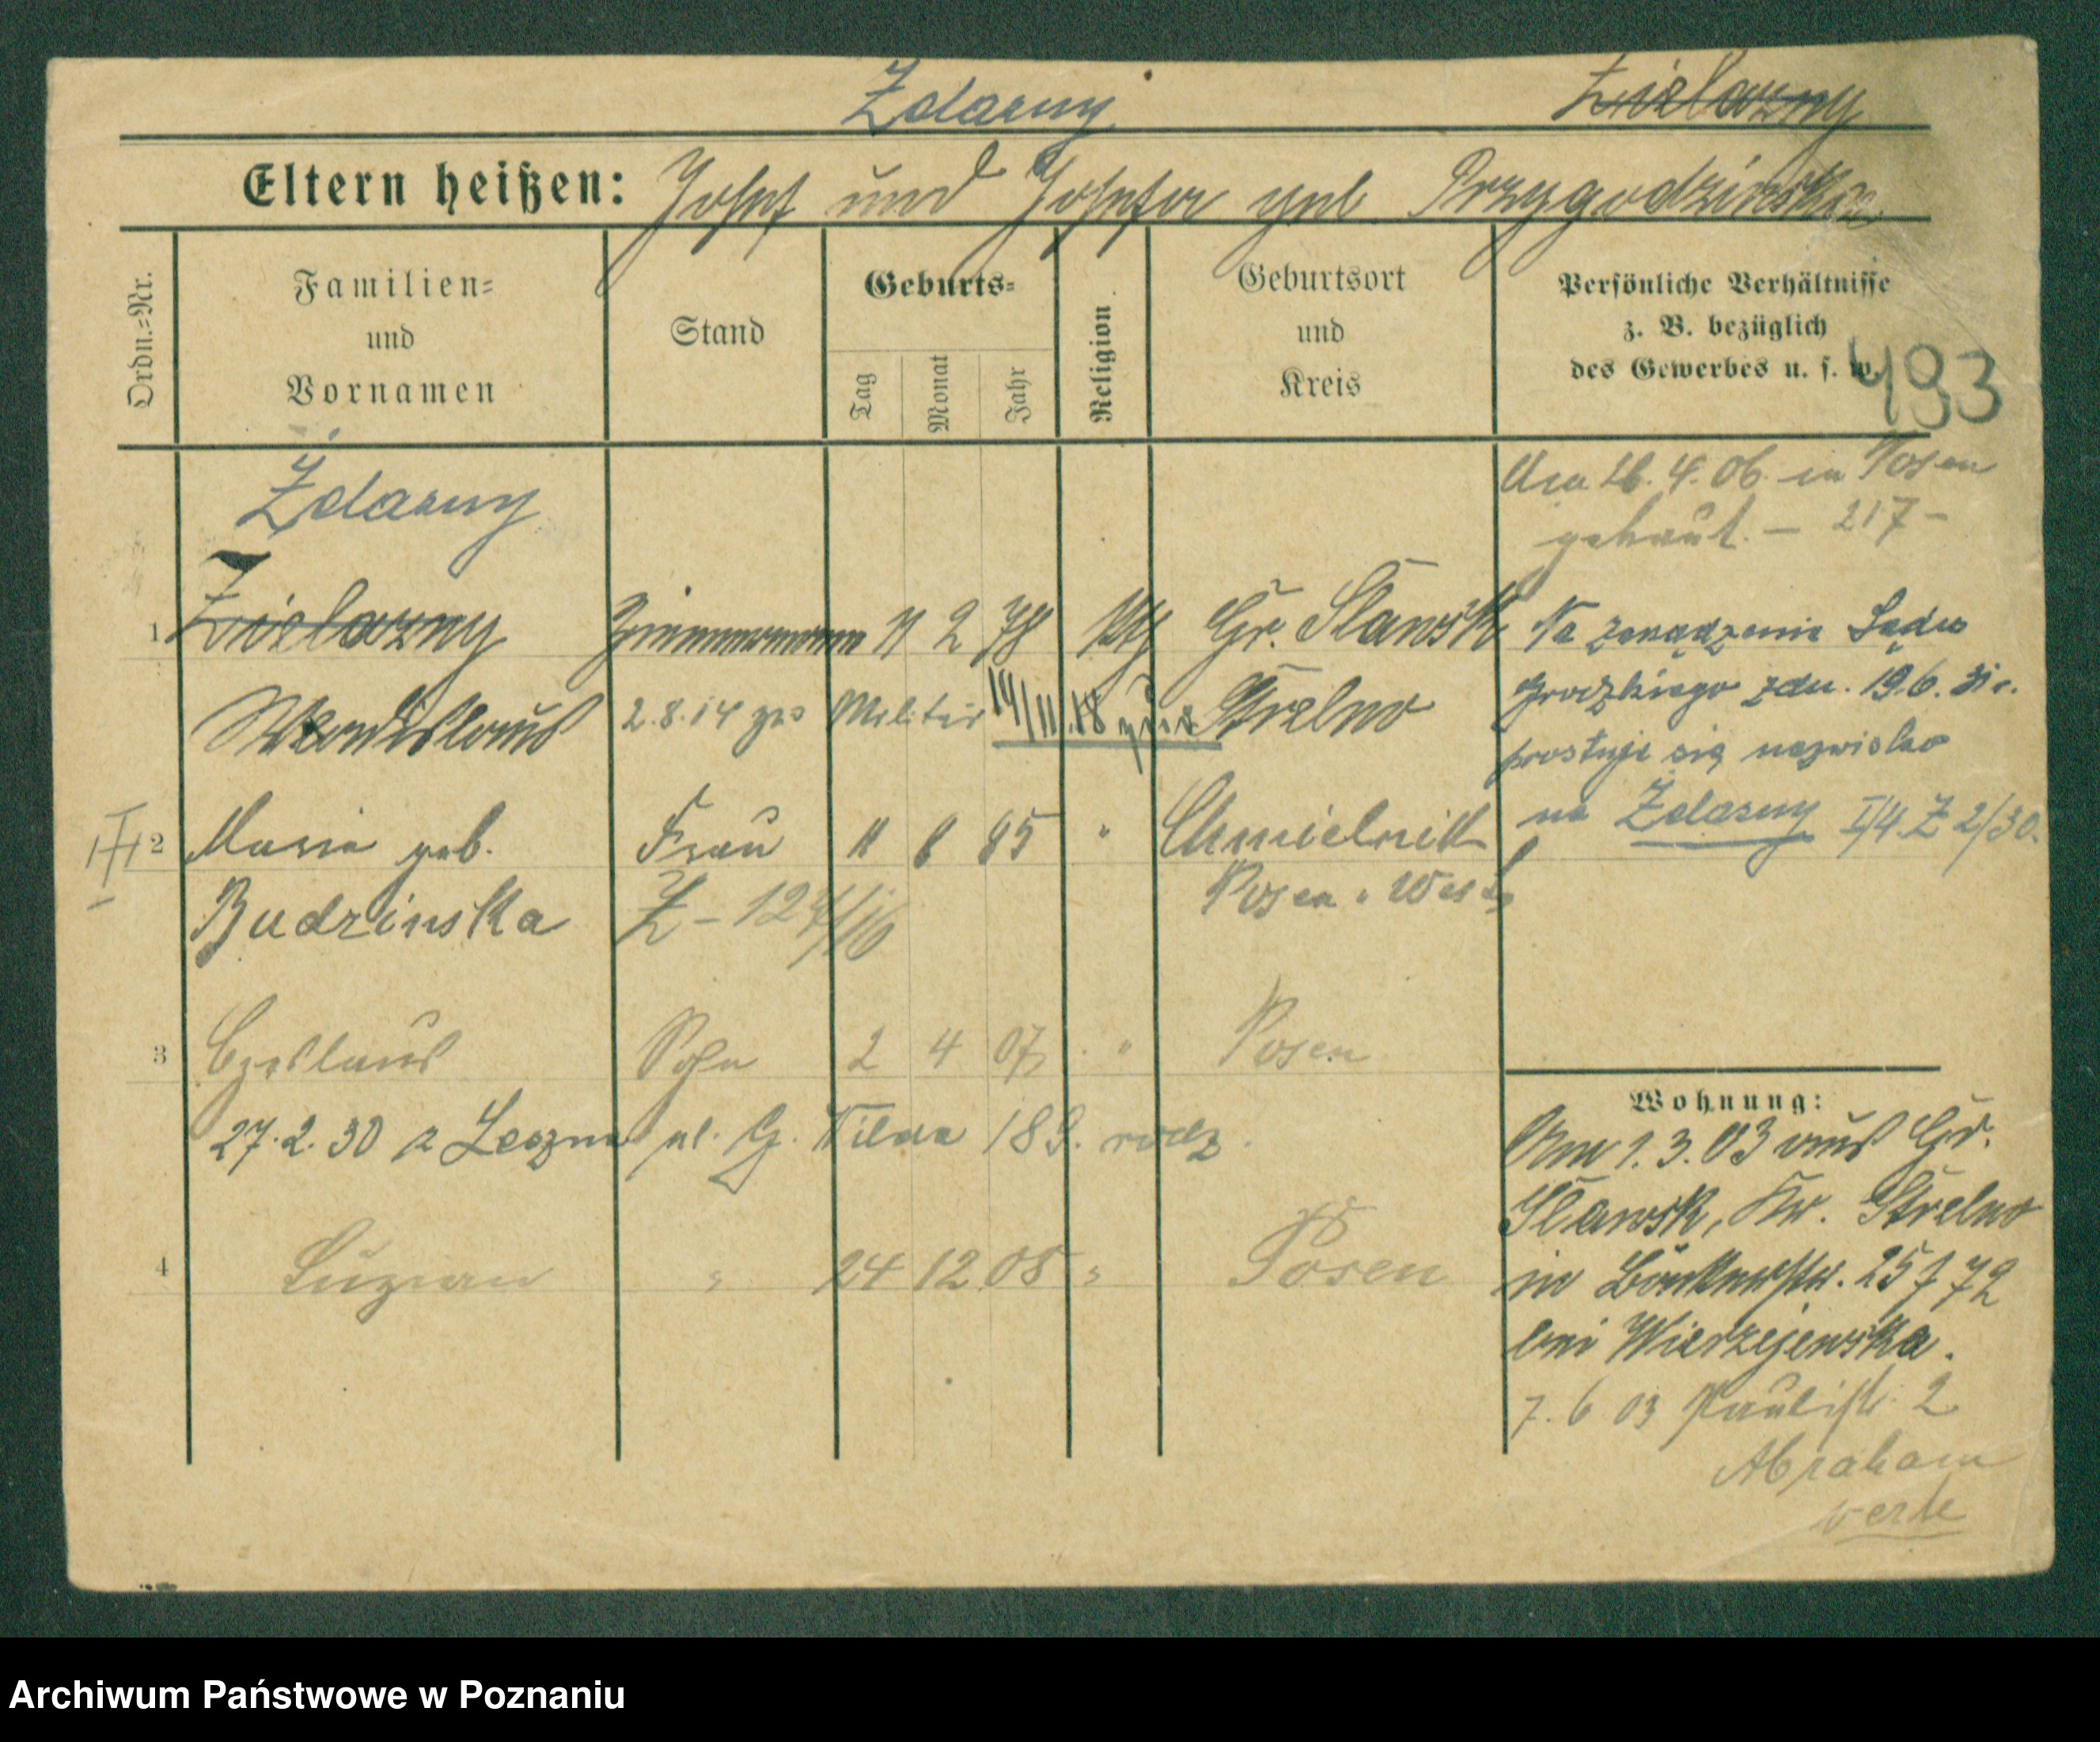 Żdarny Zielazny
Eltern heißen: Josef und Josefa geb. Przygodzinska
Ordn.=Nr.
Familien=
und
Vornamen
Stand
Geburts=
Tag
Monat
Jahr
Religion
Geburtsort
und
Kreis
Persönliche Verhältnisse
z. B. bezüglich
des Gewerbes u. s. w.
493
Żdarny
Am 26. 4. 06. in Posen
getraut. – 217 –
1 Zielazny Zimmermann 11 2 78 kth Gr. Slawsk
Wladislaus 2.8.14 zum Militär 14/11.18 zur. Strelno
Na zarządzenie Sądu
Grodzkiego z dn. 19.6. 31 r.
prostuje się nazwisko
na Żdarny I/4. Z 2/30.
2 Maria geb. Frau 11 6 85 " Chmielnik
Budzinska Z – 127/16 Posen . West
3 Czeslaus Sohn 2 4 07 " Posen
27.2.30 z Leszna ul. G. Wilda 189. rodz.
4 Luzian " 24 12 08 " Posen
Wohnung:
Am 1. 3. 03 aus Gr.
Slawsk, Kr. Strelno
in Bäckerstr. 25 f 72
bei Wierzejewska.
7. 6 03 Paulistr. 2
Abraham
verte
Archiwum Państwowe w Poznaniu